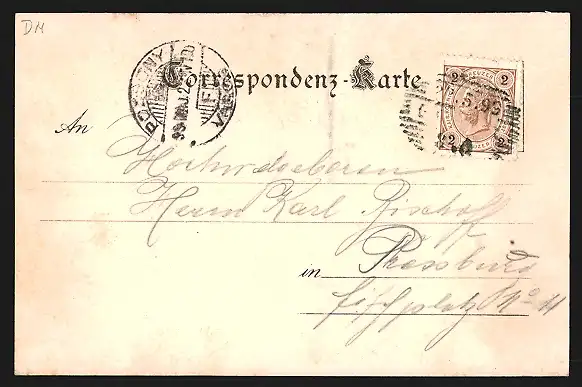 DM
Correspondenz-Karte
2 KREUZER 2
5.99
2 2
POZSONY
An
Hochwohlgeboren
Herrn Karl Bischoff
in Pressburg
No 11